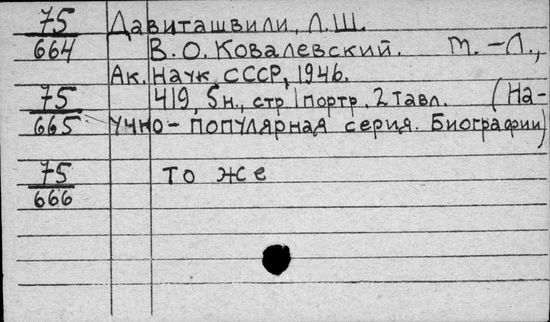 75 Давиташвили, Л.Ш.
664 В.О. Ковалевский. М.-Л.,
Ак. Наук СССР, 1946.
75 419, 5н., стр 1 портр, 2 табл. (На-
665 учно-популярная серия. Биографии)
75 то же
666